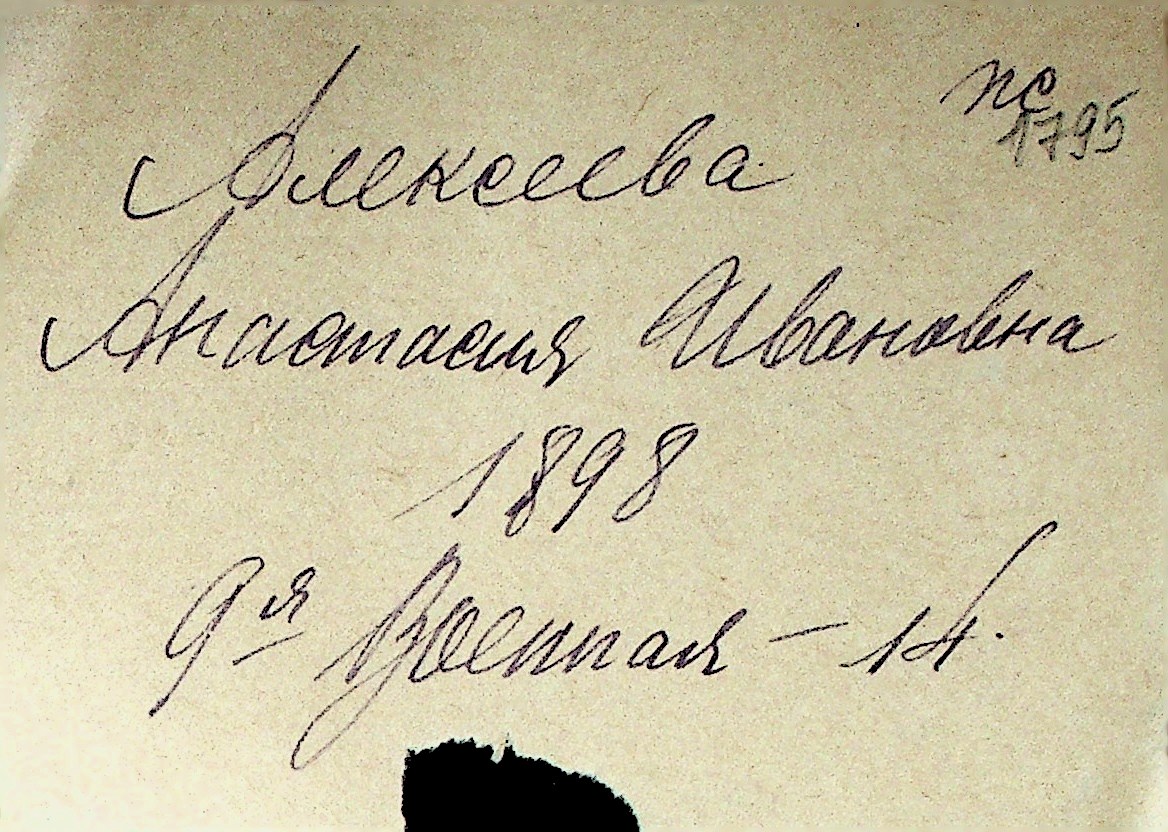 пс
1795
Алексеева
Анастасия Ивановна
1898
9ая Военная – 14.